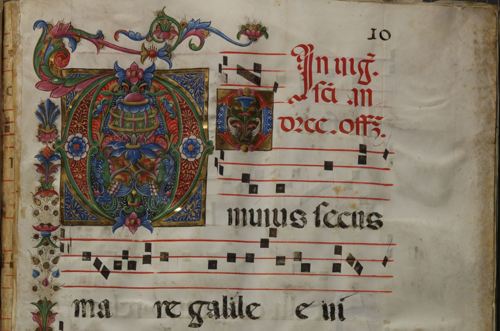 10
In uig̃.
sci .an
dree .offz̃.
DO minus secus
ma re galile e ui